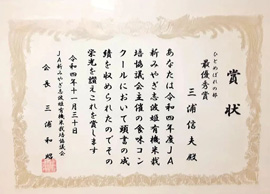 賞状
ひとめぼれの部
最優秀賞
三浦信夫殿
あなたは令和四年度JA
新みやぎ志波姫有機米栽
培協議会主催の食味コン
クールにおいて頭書の成
績を収められたのでその
栄光を讃えこれを賞します
令和四年十一月三十日
JA新みやぎ志波姫有機米栽培協議会
会長 三浦和昭